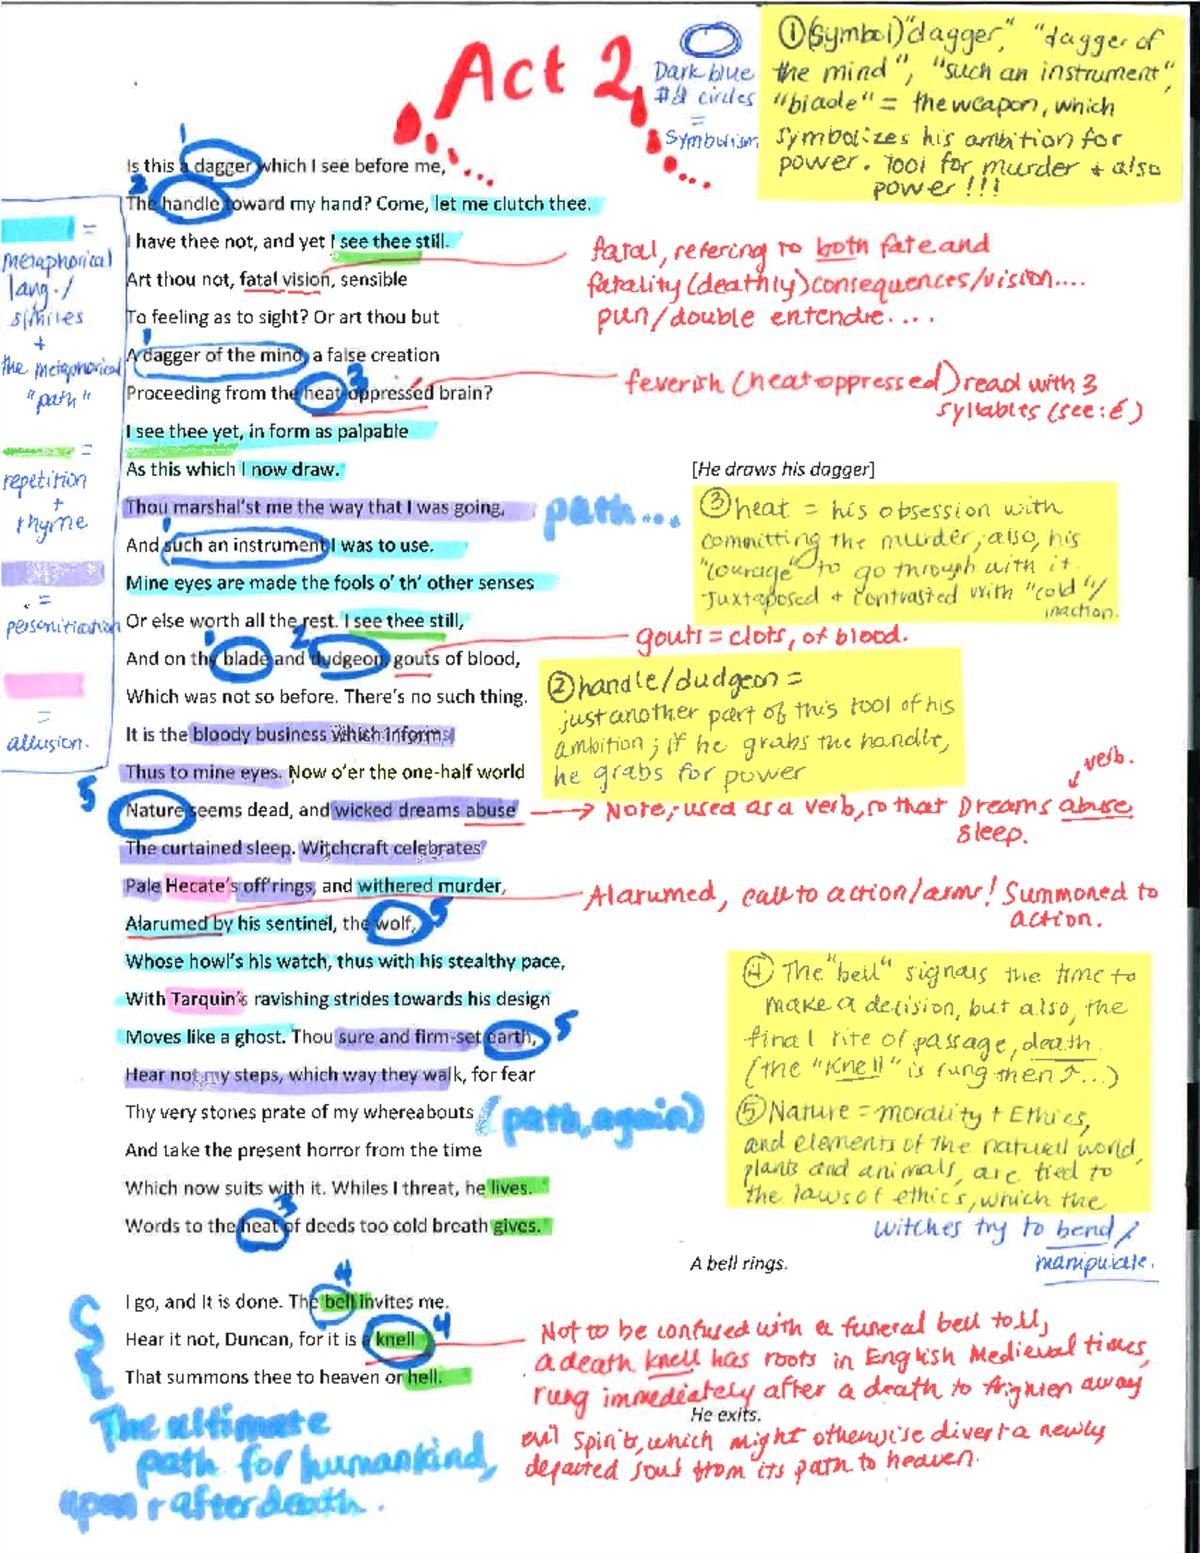 Act 2
Dark blue
#'d circles
=
Symbolism
①(Symbol)"dagger," "dagger of
the mind", "such an instrument",
"blade" = the weapon, which
symbolizes his ambition for
power. Tool for murder + also
power!!!
1
Is this a dagger which I see before me,
2
The handle toward my hand? Come, let me clutch thee.
I have thee not, and yet I see thee still.
Art thou not, fatal vision, sensible
To feeling as to sight? Or art thou but
1
A dagger of the mind, a false creation
3
Proceeding from the heat-oppressèd brain?
I see thee yet, in form as palpable
As this which I now draw.
[He draws his dagger]
Thou marshal'st me the way that I was going,
path...
1
And such an instrument I was to use.
Mine eyes are made the fools o' th' other senses
Or else worth all the rest. I see thee still,
1 2
And on thy blade and dudgeon, gouts of blood,
Which was not so before. There's no such thing.
It is the bloody business which informs
Thus to mine eyes. Now o'er the one-half world
5
Nature seems dead, and wicked dreams abuse
The curtained sleep. Witchcraft celebrates
Pale Hecate's off'rings, and withered murder,
Alarumed by his sentinel, the wolf,
5
Whose howl's his watch, thus with his stealthy pace,
With Tarquin's ravishing strides towards his design
Moves like a ghost. Thou sure and firm-set earth,
5
Hear not my steps, which way they walk, for fear
Thy very stones prate of my whereabouts
(path, again)
And take the present horror from the time
Which now suits with it. Whiles I threat, he lives.
3
Words to the heat of deeds too cold breath gives.
A bell rings.
4
I go, and it is done. The bell invites me.
Hear it not, Duncan, for it is a knell
4
That summons thee to heaven or hell.
He exits.
=
metaphorical
lang./
similes
+
the metaphorical
"path"
=
repetition
+
rhyme
=
personification
=
allusion.
fatal, refering to both fate and
fatality (deathly) consequences/vision....
pun/double entendre....
feverish (heat-oppressed) read with 3
syllables (see: é)
③heat = his obsession with
committing the murder; also, his
"courage" to go through with it.
Juxtaposed + contrasted with "cold"/
inaction.
gouts = clots, of blood.
②handle/dudgeon =
just another part of this tool of his
ambition; if he grabs the handle,
he grabs for power
verb.
Note,-used as a verb, so that Dreams abuse
sleep.
Alarumed, call to action/arms! Summoned to
action.
④ The "bell" signals the time to
make a decision, but also, the
final rite of passage, death.
(the "Knell" is rung then ↑...)
⑤Nature = morality + Ethics,
and elements of the natural world,
plants and animals, are tied to
the laws of ethics, which the
witches try to bend/
manipulate.
Not to be confused with a funeral bell toll,
a death knell has roots in English Medieval times,
rung immediately after a death to frighten away
evil spirits, which might otherwise divert a newly
departed soul from its path to heaven.
The ultimate
path for humankind,
upon + after death.